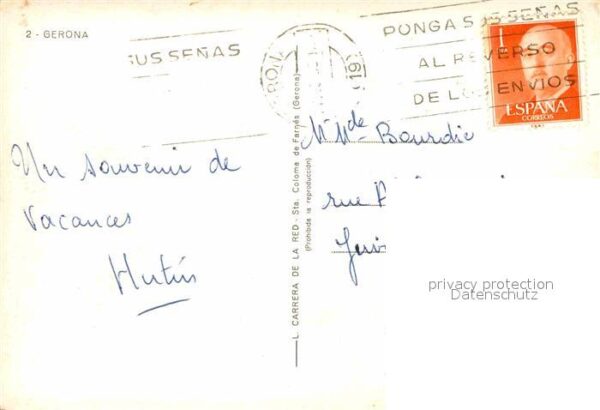 2 - GERONA
SUS SEÑAS
PONGA SUS SEÑAS
AL REVERSO
DE LOS ENVIOS
ESPAÑA
CORREOS
Un souvenir de
vacances
L. CARRERA DE LA RED - Sta. Coloma de Farnés (Gerona)
(Prohibida la reproducción)
Mr Mde Bourdie
rue
privacy protection
Datenschutz